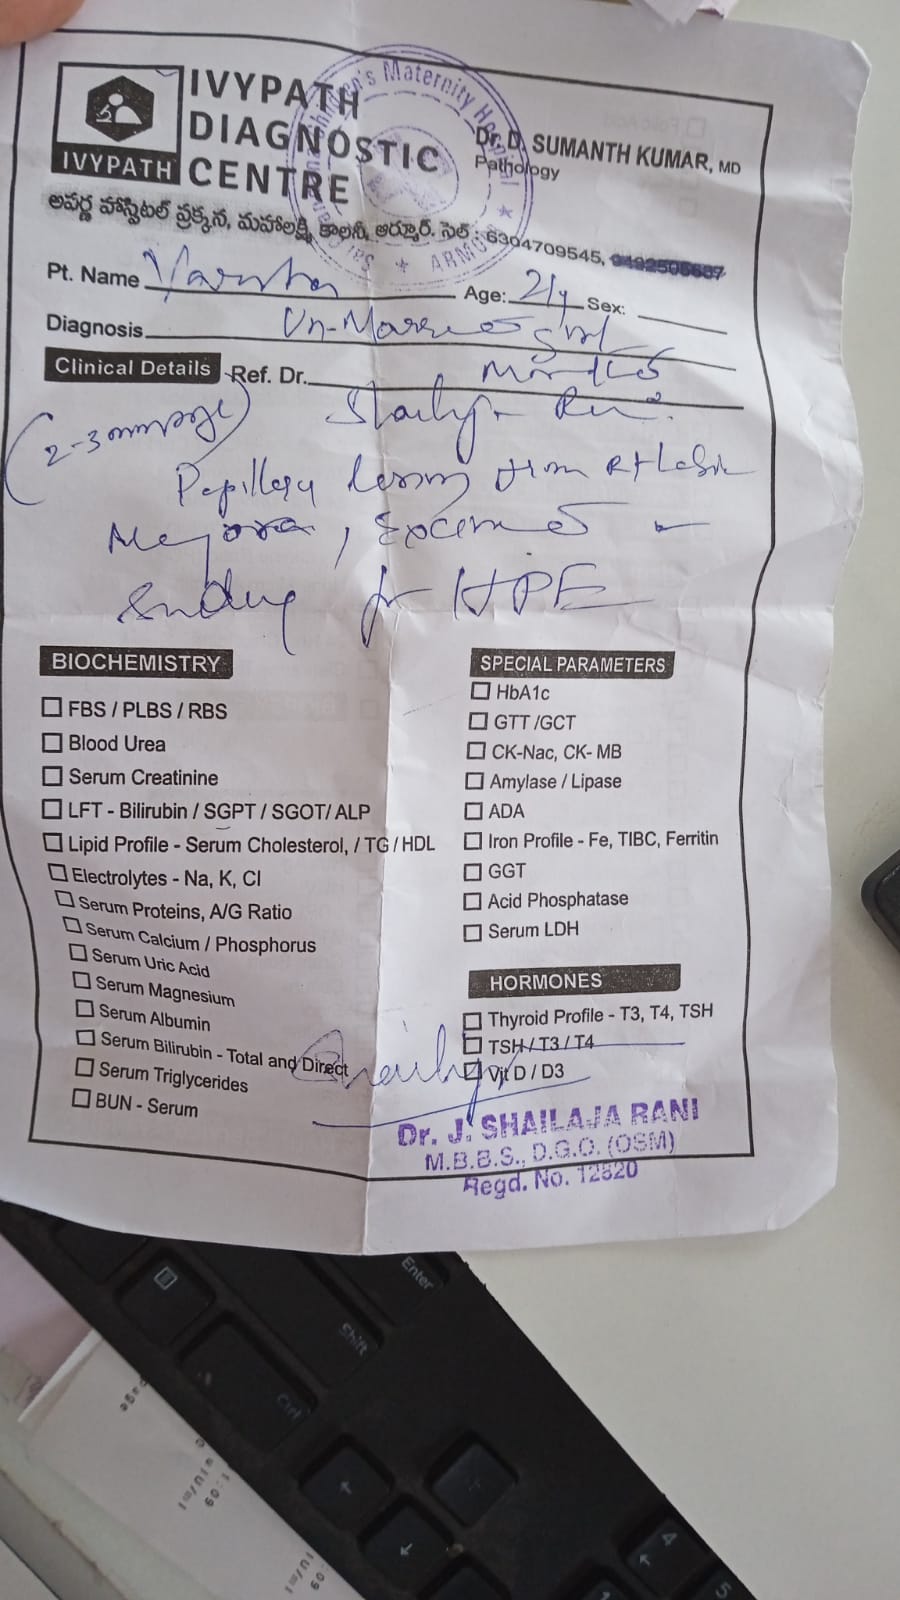 IVYPATH
DIAGNOSTIC
CENTRE
IVYPATH
Dr. D. SUMANTH KUMAR, MD
Pathology
Maternity
ARMOOR
అపర్ణ హాస్పిటల్ ప్రక్కన, మహాలక్ష్మి కాలనీ, ఆర్మూర్. సెల్ : 6304709545,
Pt. Name Varsha Age: 21y Sex:
Diagnosis Un-Married girl
Clinical Details Ref. Dr.
Shailaja Rani
Papillary lesion from Rt Labia
Majora, Excised
sending for HPE
BIOCHEMISTRY
FBS / PLBS / RBS
Blood Urea
Serum Creatinine
LFT - Bilirubin / SGPT / SGOT / ALP
Lipid Profile - Serum Cholesterol, / TG / HDL
Electrolytes - Na, K, Cl
Serum Proteins, A/G Ratio
Serum Calcium / Phosphorus
Serum Uric Acid
Serum Magnesium
Serum Albumin
Serum Bilirubin - Total and Direct
Serum Triglycerides
BUN - Serum
SPECIAL PARAMETERS
HbA1c
GTT /GCT
CK-Nac, CK- MB
Amylase / Lipase
ADA
Iron Profile - Fe, TIBC, Ferritin
GGT
Acid Phosphatase
Serum LDH
HORMONES
Thyroid Profile - T3, T4, TSH
TSH / T3 / T4
Vit D / D3
Dr. J. SHAILAJA RANI
M.B.B.S., D.G.O. (OSM)
Regd. No. 12820
Enter
Shift
Ctrl